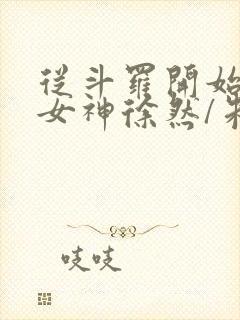 從斗羅開始
女神徐然/
吱吱